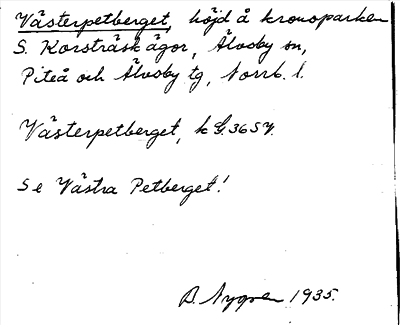 Västerpetberget, höjd å kronoparken
S. Korsträsk ägor, Älvsby sn,
Piteå och Älvsby tg, Norrb. l.
Västerpetberget, k G. 36 SV.
Se Västra Petberget!
B. Nygren 1935.